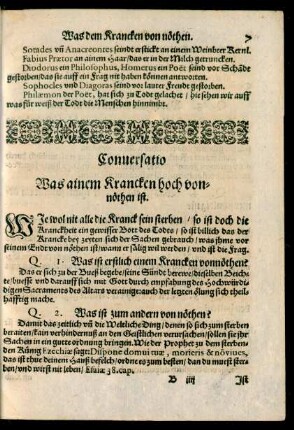 Was dem Krancken von nöthen. 7
Sotades vñ Anacreontes seindt erstickt an einem Weinbeer Kernl.
Fabius Prætor an einem Haar/das er in der Milch getruncken.
Diodorus ein Philosophus, Homerus ein Poët seind vor Schädt
gestorben/das sie auff ein Frag nit haben können antworten.
Sophocles vnd Diagoras seind vor lauter Freudt gestorben.
Philæmon der Poët, hat sich zu Todt gelachet / hie sehen wir auff
was für weiß der Todt die Menschen hinnimbt.
Conuersatio
Was ainem Krancken hoch von-
nöthen ist.
WJe wol nit alle die Kranck sein sterben / so ist doch die
Kranckheit ein gewisser Bott des Todts / so ist billich das der
Krancke bey zeyten sich der Sachen gebrauch / was jhme vor
seinem End von nöthen ist/wann er sälig wil werden / vnd ist die Frag.
Q. 1. Was ist erstlich einem Krancken vonnöthen?
Das er sich zu der Bueß begebe/seine Sünd berewe/dieselben Beich-
te/buesse vnd darauff sich mit Gott durch empfahung des Hochwür-
digisten Sacraments des Altars verainige: auch der letzten Ölung sich theil-
hafftig mache.
Q. 2. Was ist zum andern von nöthen?
Damit das zeitlich vñ die Weltliche Ding / denen so sich zum sterben
beraiten/kain verhindernuß an den Geistlichen verursachen/sollen sie jhr
Sachen in ein gutte ordnung bringen. Wie der Prophet zu dem sterben-
den König Ezechiæ sagt: Dispone domui tuæ, morieris & nō viues,
das ist thue deinem Hauß befelch/ordne es zum besten/ dan du muest ster-
ben/vnd wirst nit leben / Esaiæ 38. cap.
D iiij Ist